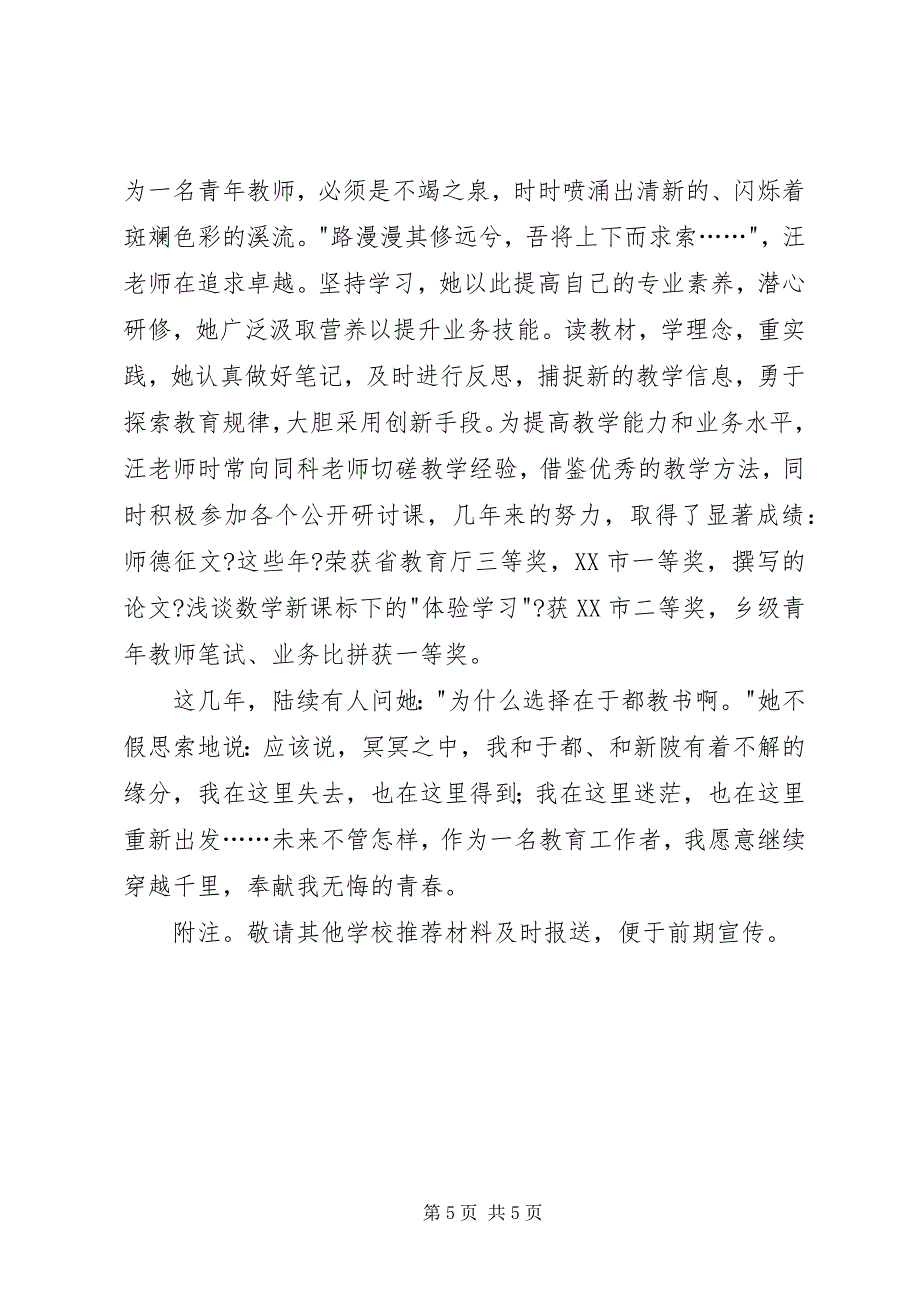 为一名青年教师，必须是不竭之泉，时时喷涌出清新的、闪烁着
斑斓色彩的溪流。"路漫漫其修远兮，吾将上下而求索……"，汪
老师在追求卓越。坚持学习，她以此提高自己的专业素养，潜心
研修，她广泛汲取营养以提升业务技能。读教材，学理念，重实
践，她认真做好笔记，及时进行反思，捕捉新的教学信息，勇于
探索教育规律，大胆采用创新手段。为提高教学能力和业务水平，
汪老师时常向同科老师切磋教学经验，借鉴优秀的教学方法，同
时积极参加各个公开研讨课，几年来的努力，取得了显著成绩：
师德征文?这些年?荣获省教育厅三等奖，XX 市一等奖，撰写的
论文?浅谈数学新课标下的"体验学习"?获 XX 市二等奖，乡级青
年教师笔试、业务比拼获一等奖。
这几年，陆续有人问她："为什么选择在于都教书啊。"她不
假思索地说：应该说，冥冥之中，我和于都、和新陂有着不解的
缘分，我在这里失去，也在这里得到；我在这里迷茫，也在这里
重新出发……未来不管怎样，作为一名教育工作者，我愿意继续
穿越千里，奉献我无悔的青春。
附注。敬请其他学校推荐材料及时报送，便于前期宣传。
第 5 页 共 5 页